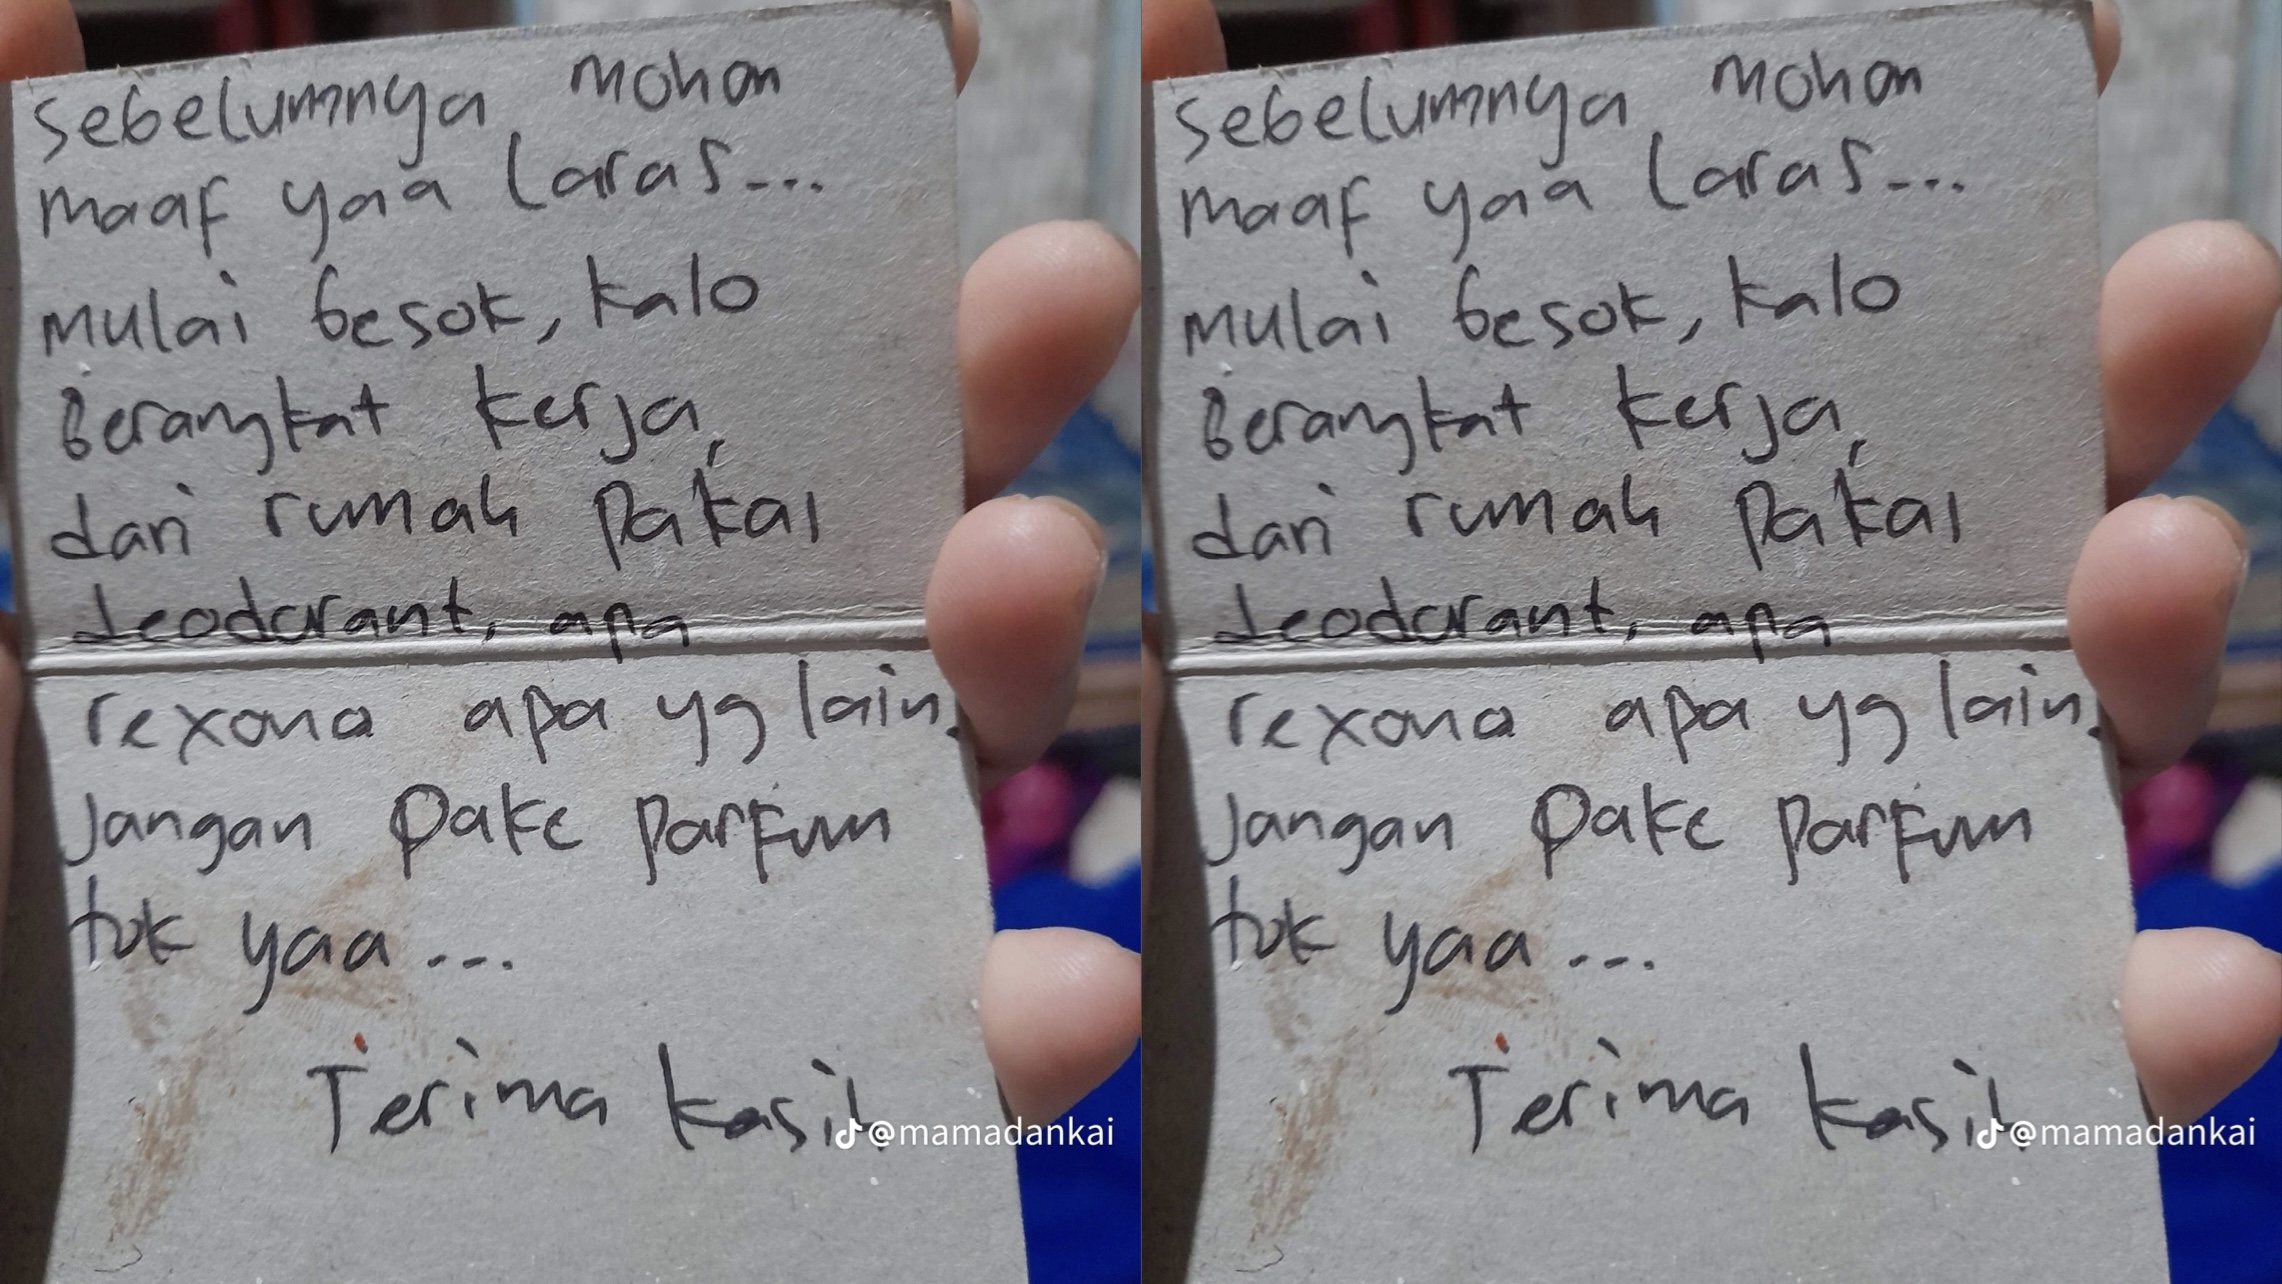 Sebelumnya mohon
maaf yaa Laras...
mulai besok, kalo
Berangkat kerja,
dari rumah pakai
deodorant, apa
rexona apa yg lain.
Jangan pake parfum
tok yaa...
Terima kasih
@mamadankai
Sebelumnya mohon
maaf yaa Laras...
mulai besok, kalo
Berangkat kerja,
dari rumah pakai
deodorant, apa
rexona apa yg lain.
Jangan pake parfum
tok yaa...
Terima kasih
@mamadankai